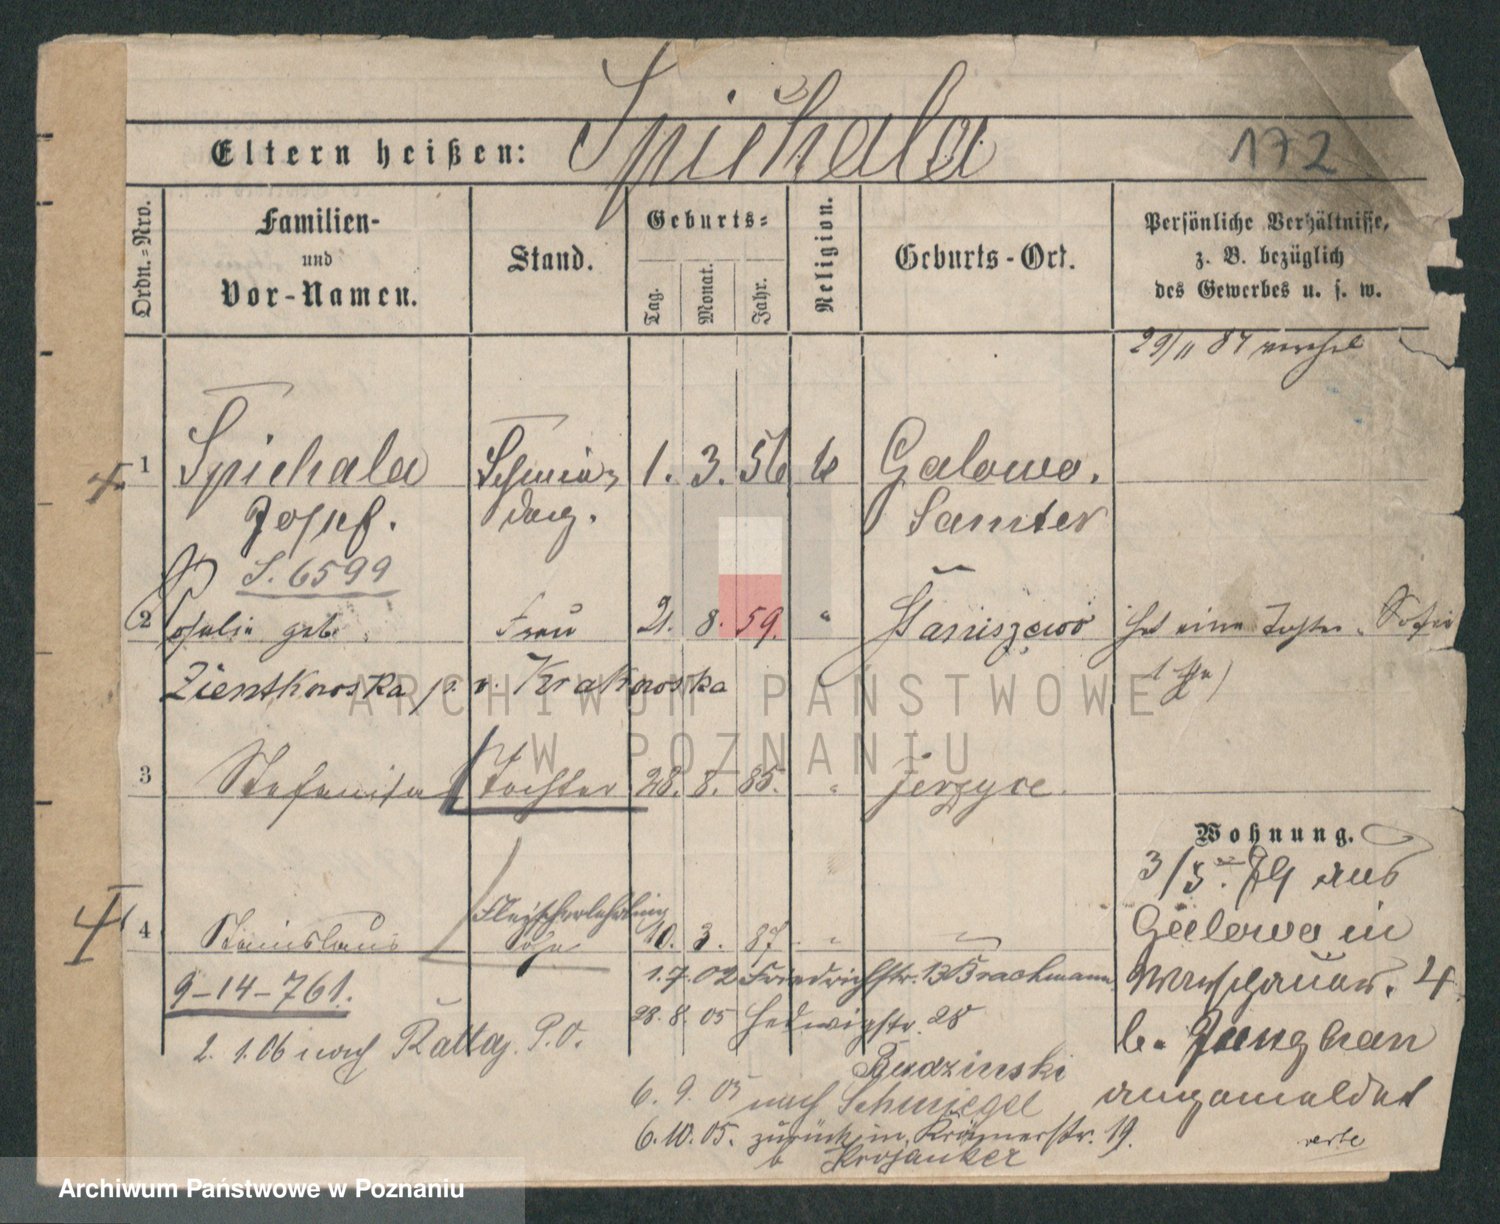 Spichala
Eltern heißen:
172
Ordn.=Nro.
Familien-
und
Vor-Namen.
Stand.
Geburts=
Tag.
Monat.
Jahr.
Religion.
Geburts-Ort.
Persönliche Verhältnisse,
z. B. bezüglich
des Gewerbes u. s. w.
29/11 87
1 Spichala 1. 3. 56 k Galowo.
Josef. Samter
S. 6599
2 Rosalie geb. Frau 21. 8. 59. " Staniszewo hat eine Tochter Sofie
Zientkowska, p. v. Krakowska
3 Stefanisa Tochter 28. 8. 85. " Jerzyce.
Wohnung.
3/5. 79 aus
Fleischerlehrling
4 Stanislaus Sohn 10. 3. 87. " " Galowo in
9-14-761.
1.7.02 Friedrichstr. 13 Brachmann
Warschauer. 4
28. 8. 05 Hedwigstr. 28
b. Junghan
2. 1. 06 nach Rattaj. P.O.
Budzinski
6. 9. 05 nach Schmiegel
angemeldet
6. 10. 05. zurück in, Krämerstr. 19.
verte
b Krojanker
ARCHIWUM PAŃSTWOWE
W POZNANIU
Archiwum Państwowe w Poznaniu